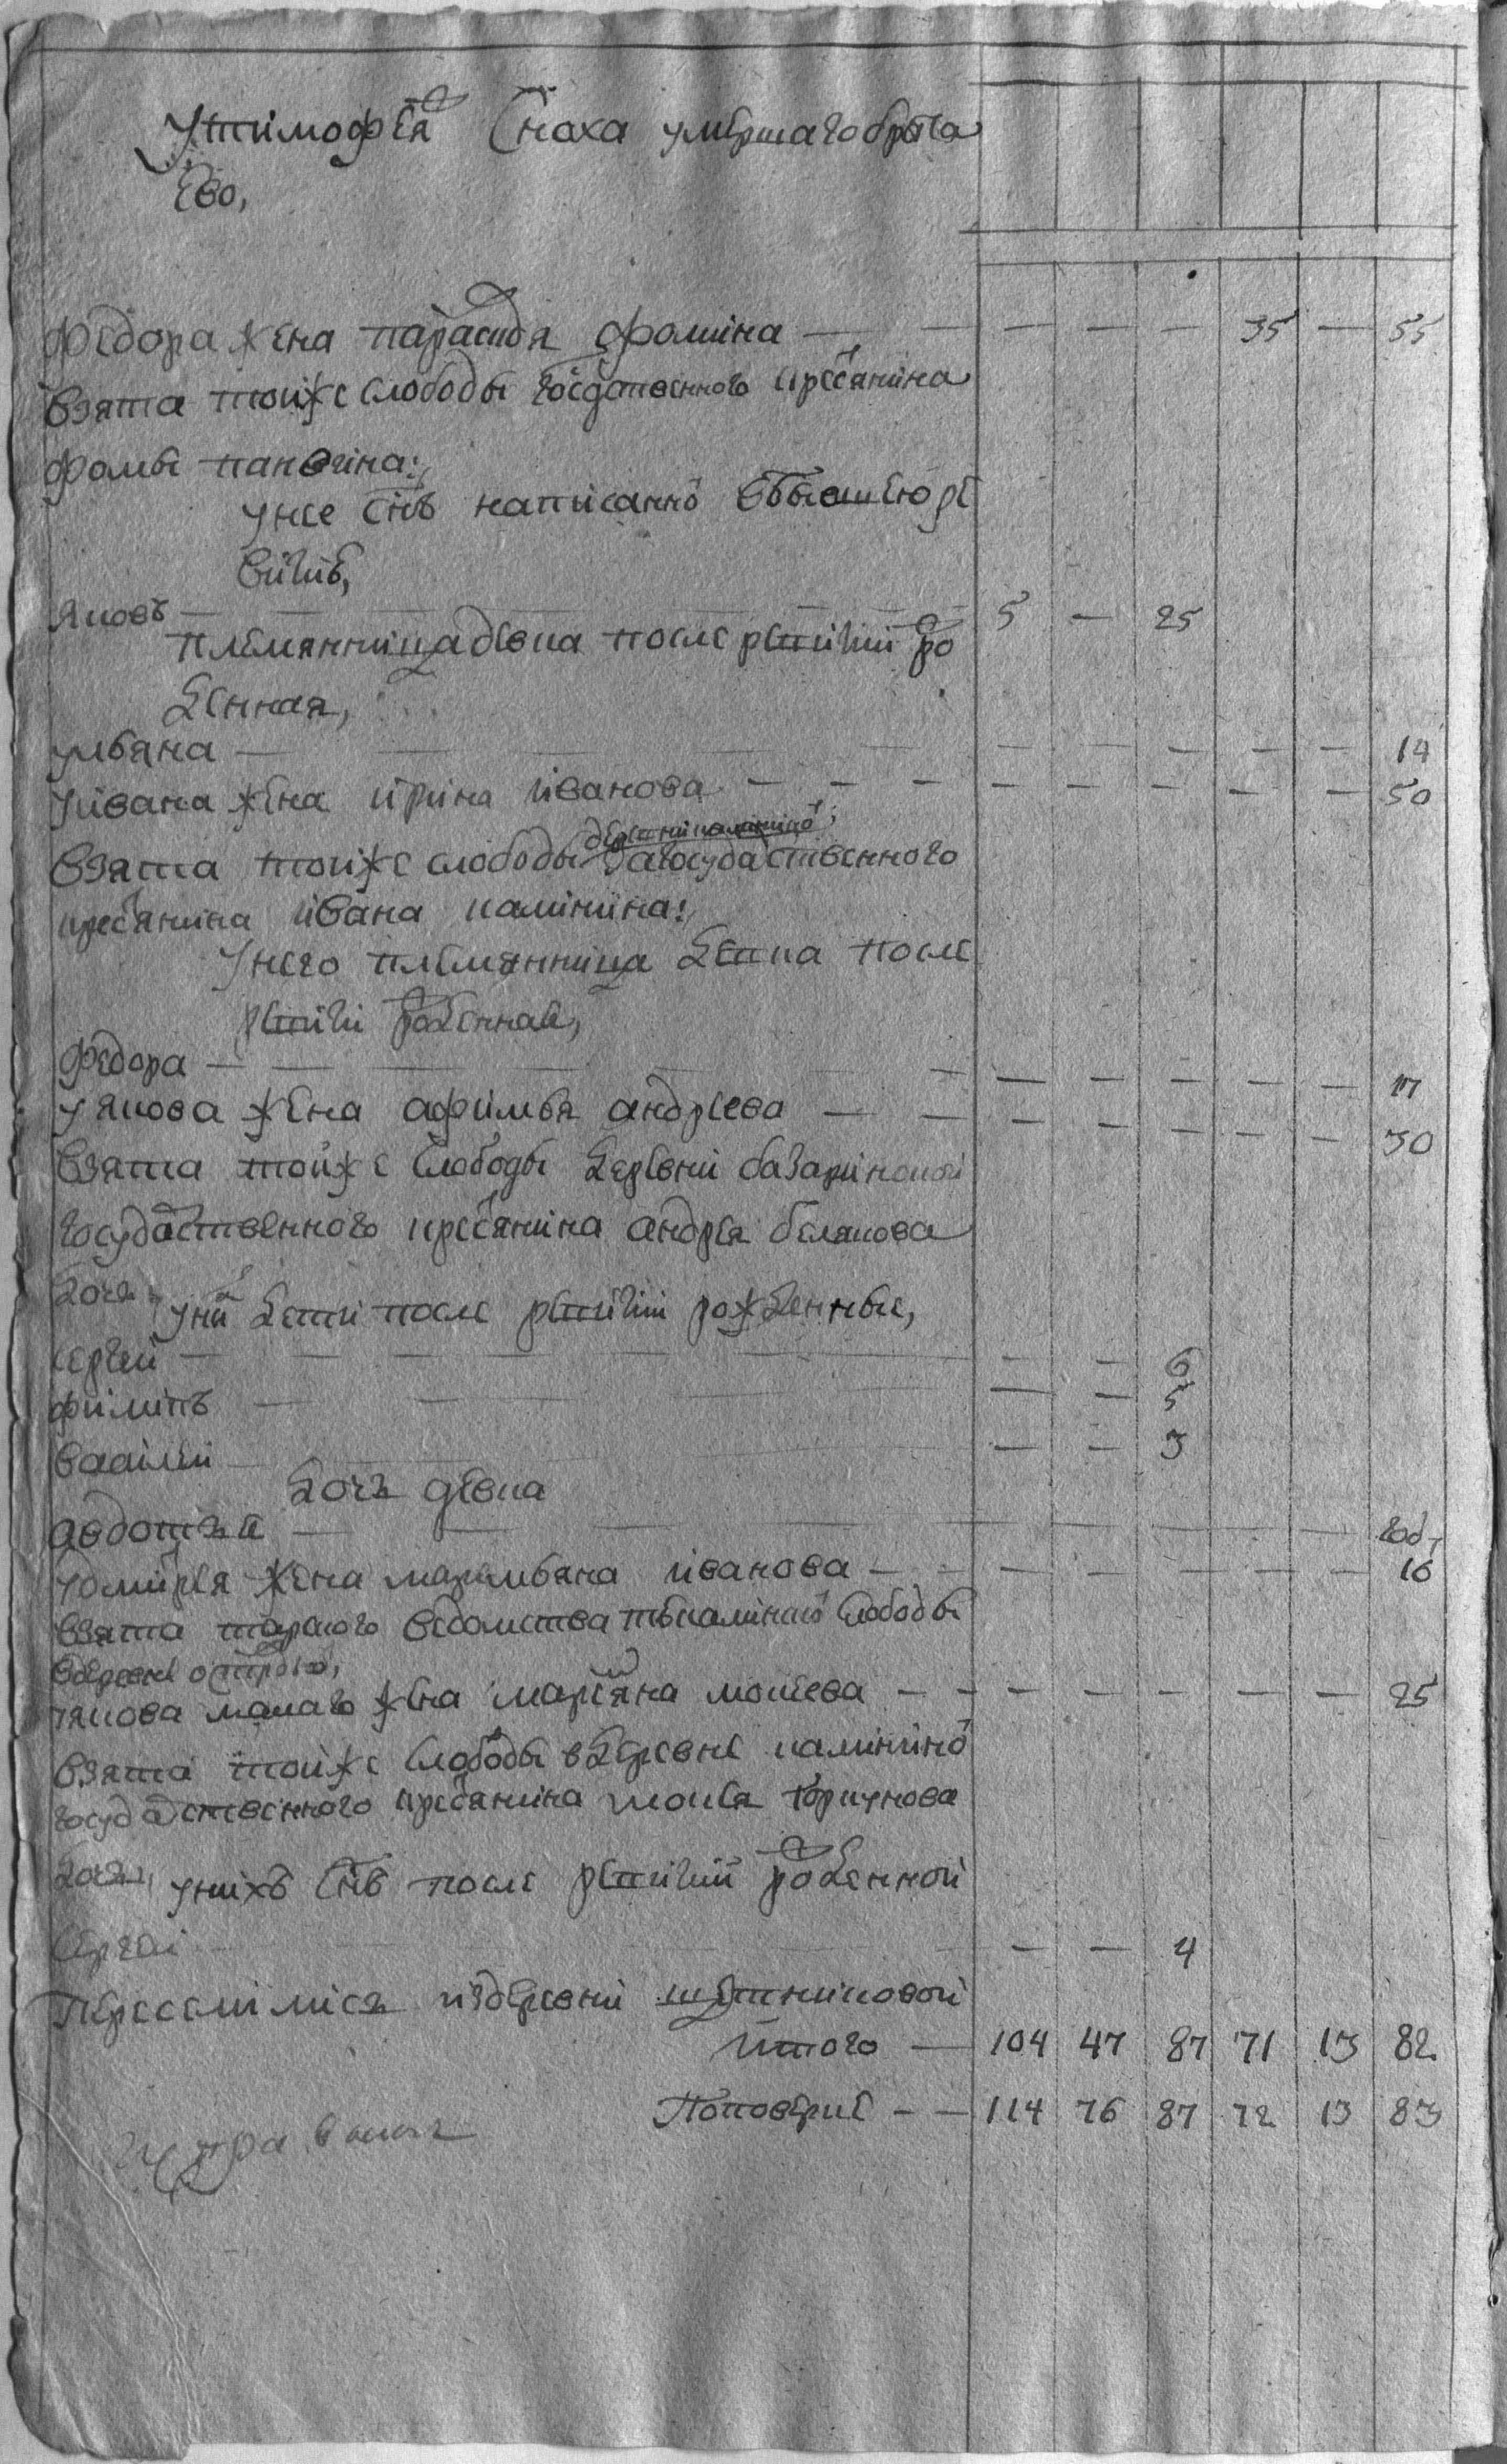 У тимофея Сноха умершаго брата
Ево,
Федора жена парасковя фомина — — — — — 35 — 55
взята тойже слободы госдатвенного кресянина
фомы
у нее снъ написанно в бывшею ре
визию,
яковъ — — — 5 — 25
племянница девка после ревизии ро
денная,
ульяна — — — — — — — — 14
у ивана жена ирина иванова — — — — — — — — 50
взята тойже слободы государственного
кресянина ивана калинина:
у него племянница девка после
ревизии роденная,
Федора — — — — — — — — 17
у якова жена афимья андреева — — — — — — — 30
взята тойже слободы деревни базариновой
государственного кресянина андрея белякова
дочь, у ни дети после ревизии рожденные,
сергей — — — — — 6
филипъ — — — — 5
васили — — — 3
дочь девка
авдотья — — — — — — — — год,
у дмитрея жена маремьяна иванова — — — — — — — 16
взята ведомства слободы
в деревне
у якова малаго жена марьяна мокеева — — — — — — — — 25
взята тойже слободы в деревне калинино
государственного кресянина мокея горчунова
дочь, у нихъ снъ после ревизии роденной
Сергеи — — — 4
Переселилися из деревни
итого — 104 47 87 71 13 82
По поверке — — 114 76 87 72 13 83